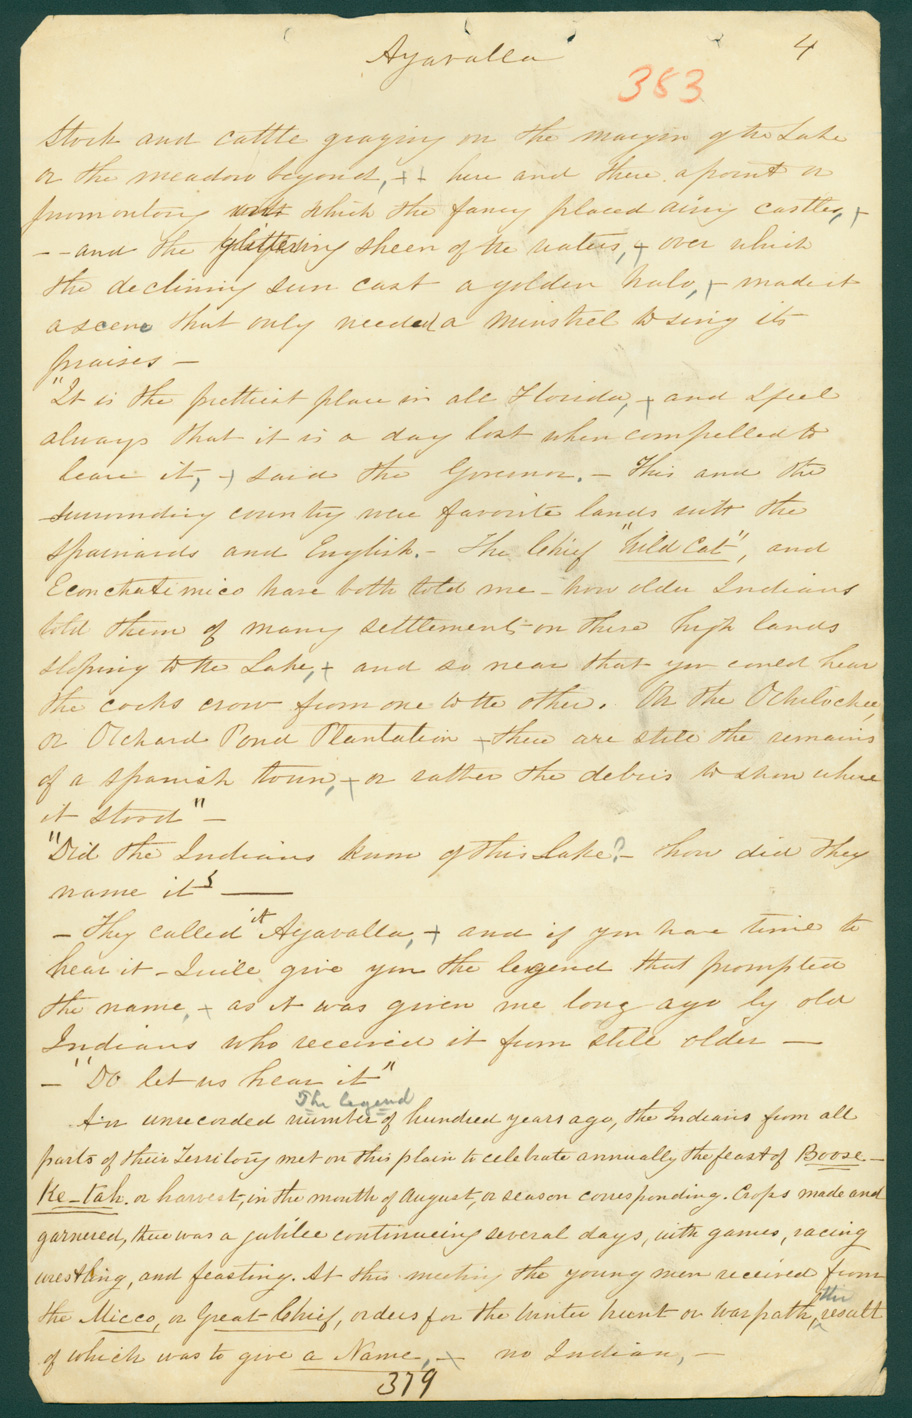 Ayavalla 4
383
stock and cattle grazing on the margin of the Lake
or the meadow beyond, ++ here and there a point or
promontory which the fancy placed airy castles, +
-- and the glittering sheen of the waters, + over which
the declining sun cast a golden halo, + made it
a scene that only needed a minstrel to sing its
praises —
"It is the prettiest place in all Florida, + and I feel
always that it is a day lost when compelled to
leave it, + said the Governor. — This and the
surrounding country were favorite lands with the
Spainards and English. — The Chief "Wild Cat", and
Econchatimico have both told me — how older Indians
told them of many settlements on these high lands
sloping to the Lake, + and so near that you could hear
the cocks crow from one to the other. On the Ochlochee,
or Orchard Pond Plantation + there are still the remains
of a spanish town, + or rather the debris to show where
it stood" —
"Did the Indians know of this Lake? — how did they
name it ? —
— They called it Ayavalla, + and if you have time to
hear it — I will give you the legend that prompted
the name, + as it was given me long ago by old
Indians who received it from still older —
— "Do let us hear it"
The legend
An unrecorded number of hundred years ago, the Indians from all
parts of their Territory met on this plain to celebrate annually the feast of Boose-
Ke-tah. or harvest, in the month of August, or season corresponding. Crops made and
garnered, there was a jubilee continueing several days, with games, racing
wrestling, and feasting. At this meeting the young men received from
the Micco, or Great Chief, orders for the winter hunt or warpath, the result
of which was to give a Name, — + no Indian, —
379